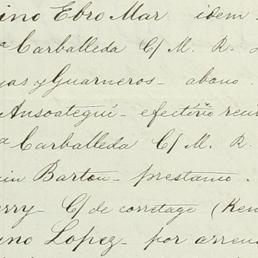 ino Ebro Mar idem
ª Carballeda C/ M. R.
as y Guarneros - abono
Ansoategui - efectivo
ª Carballeda C/ M. R.
in Barton - prestamo.
erry - C/ de corretage (Ken
no Lopez - por arren